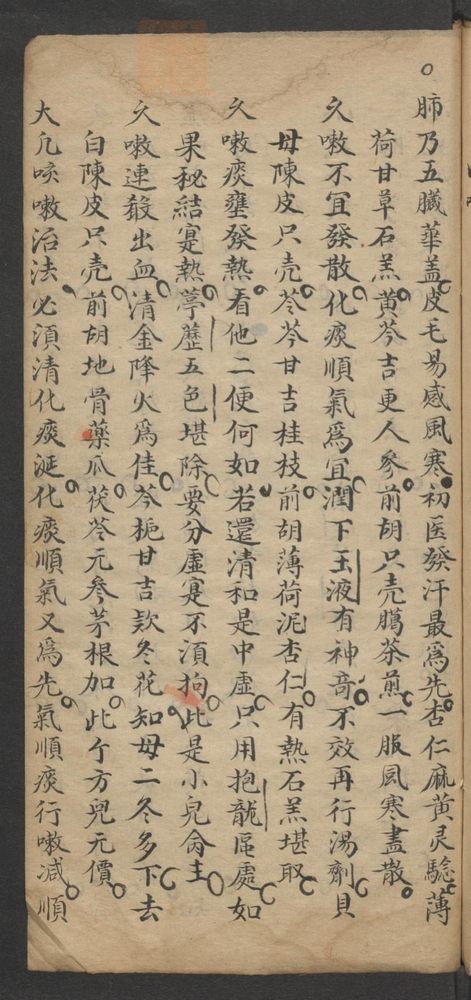 肺乃五臟華盖皮毛易感風寒初医發汗最爲先杏仁麻黄灵驗薄
荷甘草石羔黄芩吉更人参前胡只壳臈茶煎一服風寒盡散
久嗽不宜發散化痰順氣爲宜潤下玉液有神奇不效再行湯劑貝
母陳皮只壳苓芩甘吉桂枝前胡薄荷泥杏仁有熱石羔堪取
久嗽痰壅發熱看他二便何如若還清和是中虚只用抱龍區處如
果秘結寔熱葶藶五色堪除要分虚寔不湏拘此是小兒命主
久嗽連殺出血清金降火爲佳芩梔甘吉款冬花知母二冬多下去
白陳皮只壳前胡地骨蔞瓜茯苓元参茅根加此个方兒无價
大凡咳嗽治法必須清化痰涎化痰順氣又爲先氣順痰行嗽减順